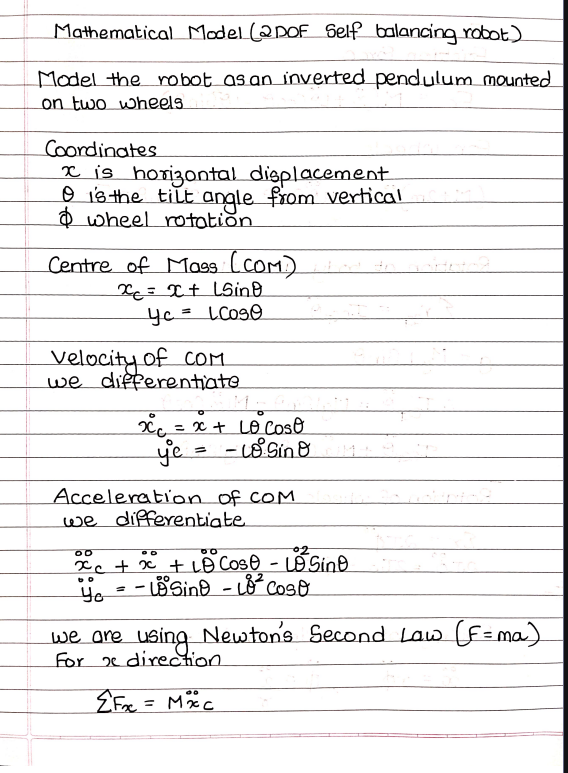 Mathematical Model (2DOF Self balancing robot)
Model the robot as an inverted pendulum mounted
on two wheels
Coordinates
x is horizontal displacement
θ is the tilt angle from vertical
ϕ wheel rotation
Centre of Mass (COM)
x_c = x + L Sinθ
y_c = L Cosθ
Velocity of COM
we differentiate
ẋ_c = ẋ + Lθ̇ Cosθ
ẏ_c = -Lθ̇ Sinθ
Acceleration of COM
we differentiate
ẍ_c + ẍ + Lθ̈ Cosθ - Lθ̇² Sinθ
ÿ_c = -Lθ̈ Sinθ - Lθ̇² Cosθ
we are using Newton's Second Law (F=ma)
For x direction
ΣFx = Mẍ_c